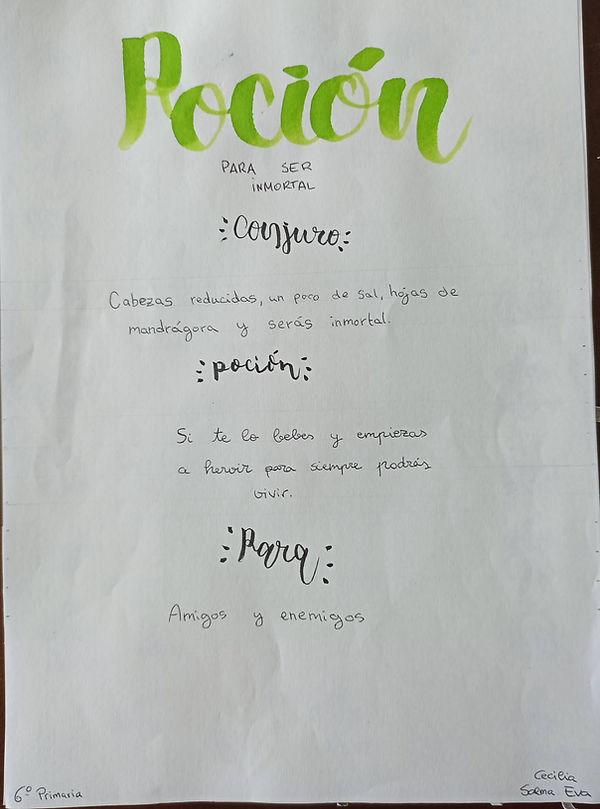 Poción
PARA SER
INMORTAL
Conjuro
Cabezas reducidas, un poco de sal, hojas de
mandrágora y serás inmortal.
poción
Si te lo bebes y empiezas
a hervir para siempre podrás
vivir.
Para
Amigos y enemigos
6º Primaria
Cecilia
Salma Eva